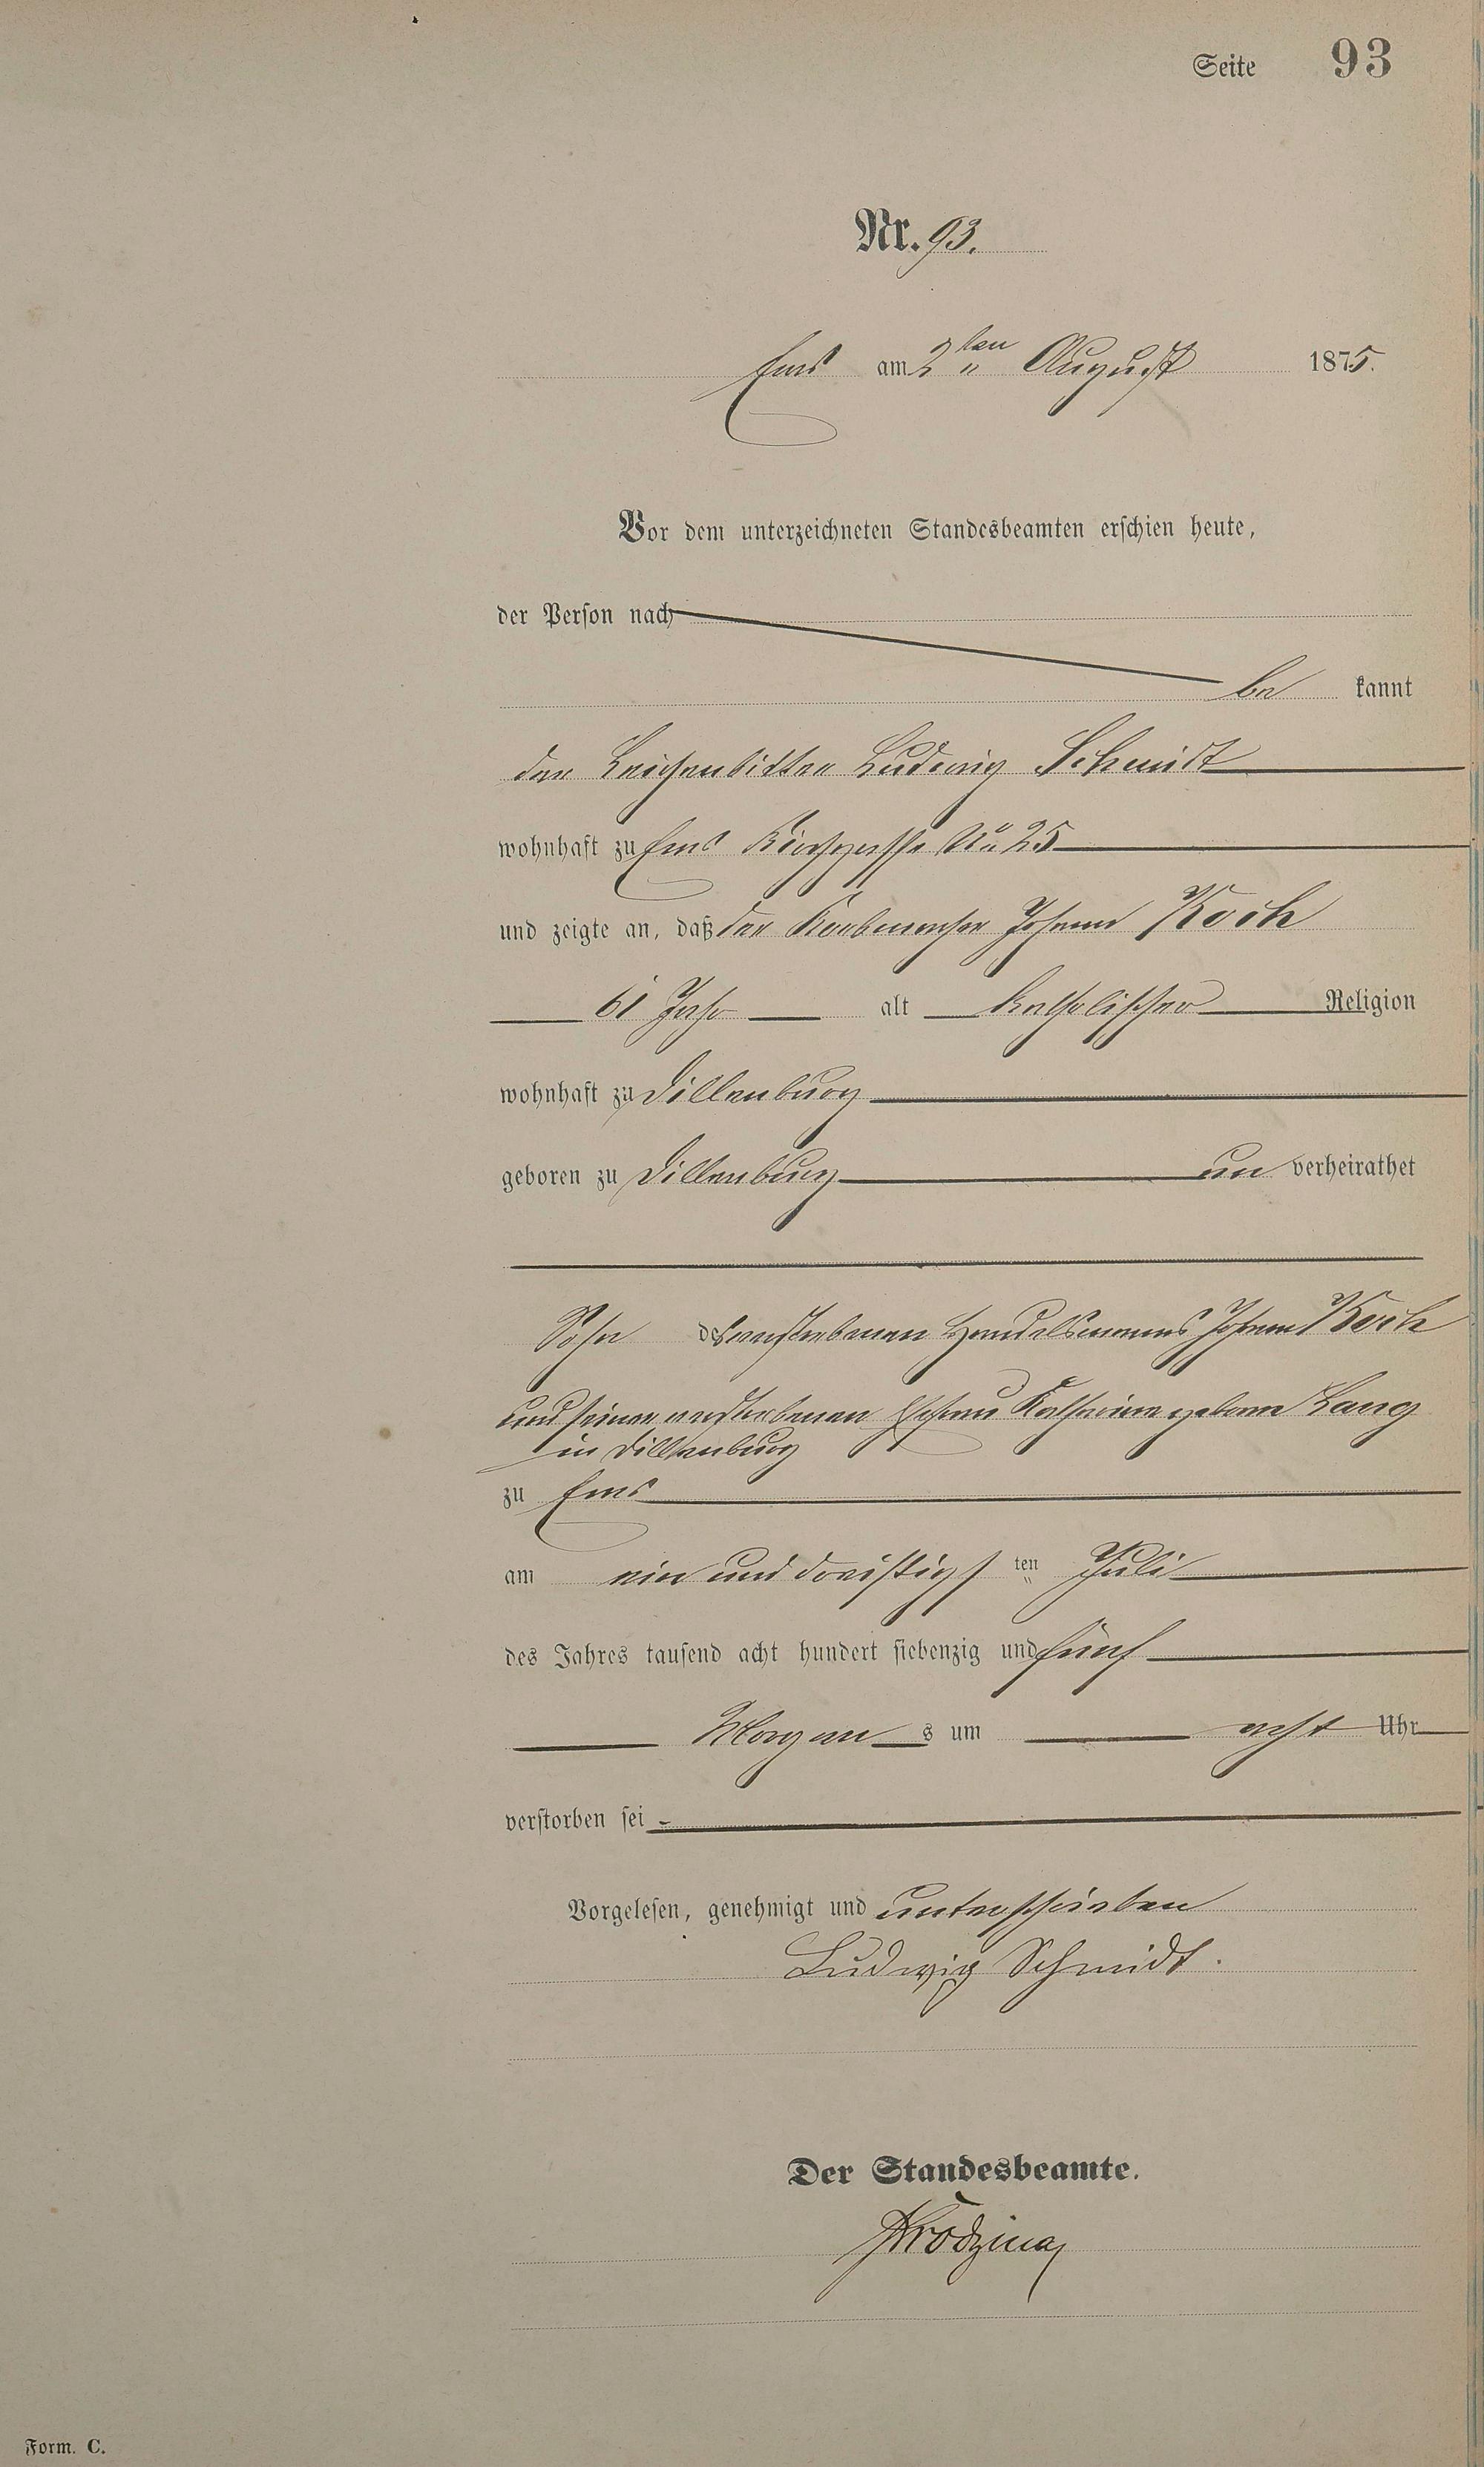 Seite 93
Nr. 93.
Ems am 2ten August 1875.
Vor dem unterzeichneten Standesbeamten erschien heute,
der Person nach
be kannt
der Leichenbitter Ludwig Schmidt
wohnhaft zu Ems Kirchgasse No 25
und zeigte an, daß der Korbmacher Johann Koch
61 Jahr alt katholischer Religion
wohnhaft zu Dillenburg
geboren zu Dillenburg un verheirathet
Sohn des verstorbenen Handelsmanns Johann Koch
und seiner verstorbenen Ehefrau Katharine geborne Lang
in Dillenburg
zu Ems
am ein und dreißigsten Juli
des Jahres tausend acht hundert siebenzig und fünf
Morgens um acht Uhr
verstorben sei
Vorgelesen, genehmigt und unterschrieben
Ludwig Schmidt.
Der Standesbeamte.
Form. C.